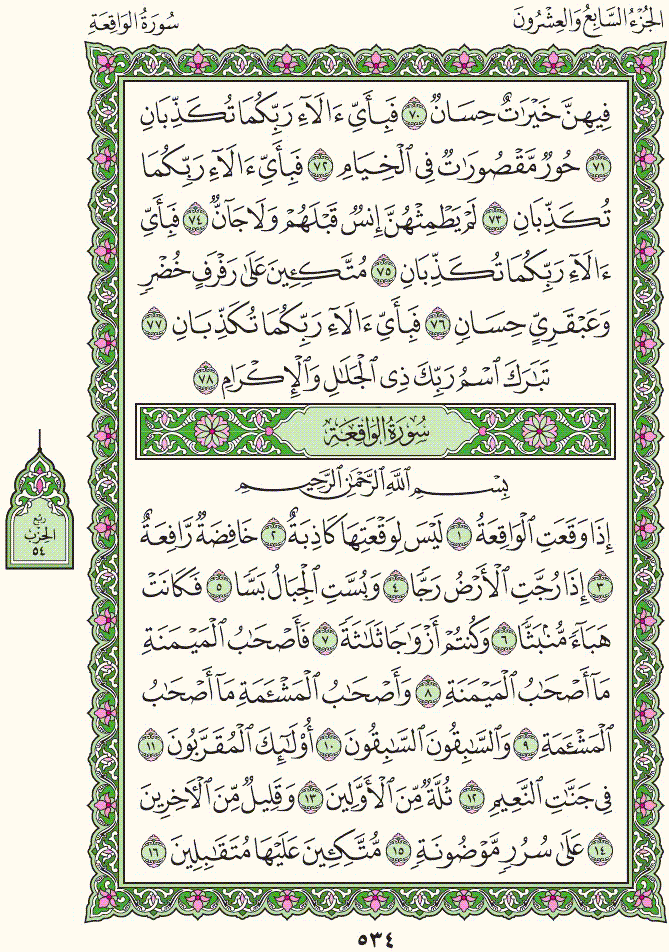 الجُزْءُ السَّابِعُ وَالعِشْرُونَ
سُورَةُ الوَاقِعَةِ
فِيهِنَّ خَيْرَٰتٌ حِسَانٌ ٧٠ فَبِأَيِّ ءَالَآءِ رَبِّكُمَا تُكَذِّبَانِ
٧١ حُورٌ مَّقْصُورَٰتٌ فِي ٱلْخِيَامِ ٧٢ فَبِأَيِّ ءَالَآءِ رَبِّكُمَا
تُكَذِّبَانِ ٧٣ لَمْ يَطْمِثْهُنَّ إِنسٌ قَبْلَهُمْ وَلَا جَآنٌّ ٧٤ فَبِأَيِّ
ءَالَآءِ رَبِّكُمَا تُكَذِّبَانِ ٧٥ مُتَّكِـِٔينَ عَلَىٰ رَفْرَفٍ خُضْرٍ
وَعَبْقَرِيٍّ حِسَانٍ ٧٦ فَبِأَيِّ ءَالَآءِ رَبِّكُمَا تُكَذِّبَانِ ٧٧
تَبَٰرَكَ ٱسْمُ رَبِّكَ ذِي ٱلْجَلَٰلِ وَٱلْإِكْرَامِ ٧٨
سُورَةُ الوَاقِعَةِ
بِسْمِ ٱللَّهِ ٱلرَّحْمَٰنِ ٱلرَّحِيمِ
إِذَا وَقَعَتِ ٱلْوَاقِعَةُ ١ لَيْسَ لِوَقْعَتِهَا كَاذِبَةٌ ٢ خَافِضَةٌ رَّافِعَةٌ
٣ إِذَا رُجَّتِ ٱلْأَرْضُ رَجًّا ٤ وَبُسَّتِ ٱلْجِبَالُ بَسًّا ٥ فَكَانَتْ
هَبَآءً مُّنۢبَثًّا ٦ وَكُنتُمْ أَزْوَٰجًا ثَلَٰثَةً ٧ فَأَصْحَٰبُ ٱلْمَيْمَنَةِ
مَآ أَصْحَٰبُ ٱلْمَيْمَنَةِ ٨ وَأَصْحَٰبُ ٱلْمَشْـَٔمَةِ مَآ أَصْحَٰبُ
ٱلْمَشْـَٔمَةِ ٩ وَٱلسَّٰبِقُونَ ٱلسَّٰبِقُونَ ١٠ أُو۟لَٰٓئِكَ ٱلْمُقَرَّبُونَ ١١
فِي جَنَّٰتِ ٱلنَّعِيمِ ١٢ ثُلَّةٌ مِّنَ ٱلْأَوَّلِينَ ١٣ وَقَلِيلٌ مِّنَ ٱلْءَاخِرِينَ
١٤ عَلَىٰ سُرُرٍ مَّوْضُونَةٍ ١٥ مُّتَّكِـِٔينَ عَلَيْهَا مُتَقَٰبِلِينَ ١٦
رُبْع
الحِزْب
٥٤
٥٣٤